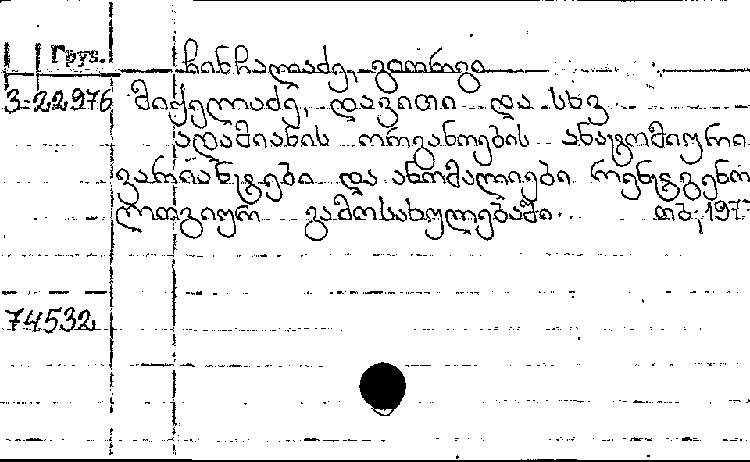 Груз.
ჩინჩალაძე, გიორგი
3-22976 მიქელაძე, დავითი და სხვ
ადამიანის ორგანოების ანატომიური
ვარიანტები და ანომალიები რენტგენო
ლოგიურ გამოსახულებაში. თბ; 197
74532